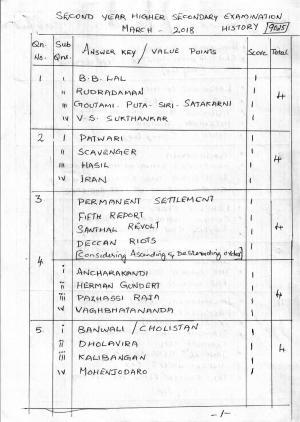 SECOND YEAR HIGHER SECONDARY EXAMINATION
MARCH - 2018 HISTORY 9025
Qn. No. Sub Qns. ANSWER KEY / VALUE POINTS Score Total
1 i B.B. LAL 1
ii RUDRADAMAN 1
iii GOUTAMI-PUTA-SIRI-SATAKARNI 1 4
iv V.S. SUKTHANKAR 1
2 i PATWARI 1
ii SCAVENGER 1
iii HASIL 1 4
iv IRAN 1
3 PERMANENT SETTLEMENT 1
FIFTH REPORT 1
SANTHAL REVOLT 1 4
DECCAN RIOTS 1
[Considering Ascending & Descending order]
4 i ANCHARAKANDI 1
ii HERMAN GUNDERT 1
iii PAZHASSI RAJA 1 4
iv VAGHBHATANANDA 1
5. i BANWALI / CHOLISTAN 1
ii DHOLAVIRA 1
iii KALIBANGAN 1 4
iv MOHENJODARO 1
-1-